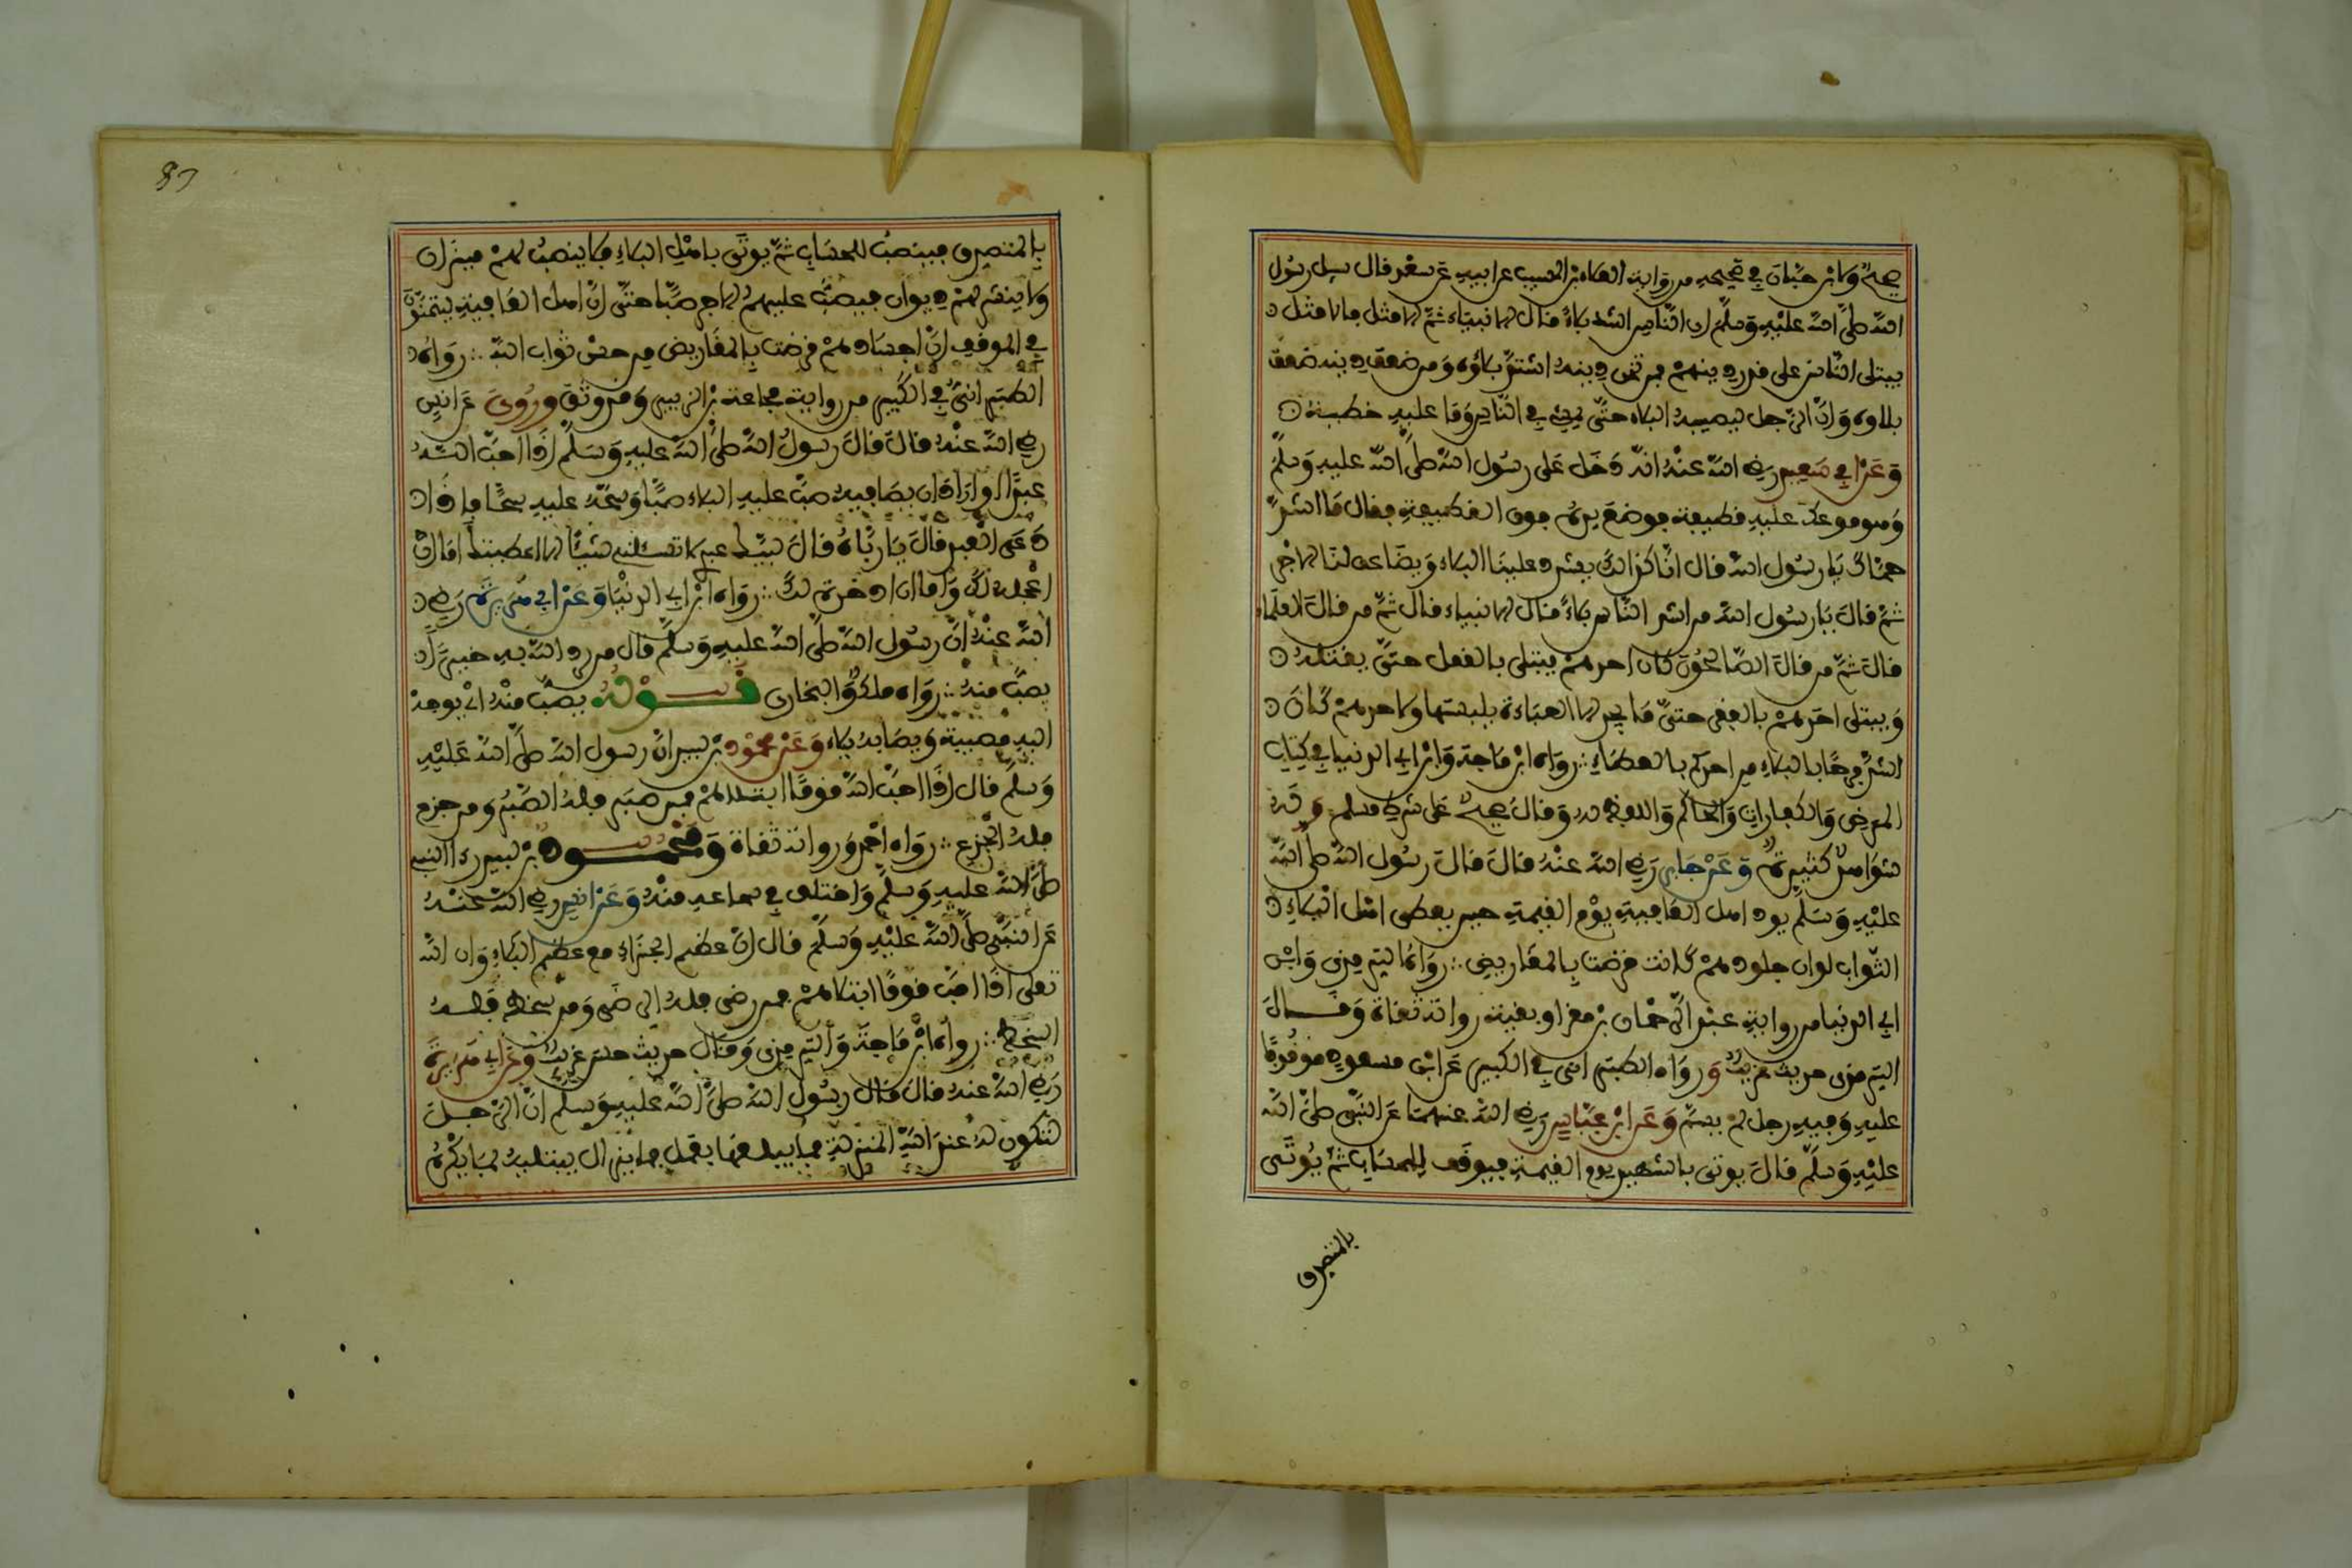 صحيح ولابن حبان في صحيحه من رواية العلاء بن المسيب عن ابيه عن سعد قال سيل رسول
الله صلى الله عليه وسلم اي الناس اشد بلاء قال الانبياء ثم الامثل فالامثل
يبتلى الناس على قدر دينهم فمن ثخن دينه اشتد بلاؤه ومن ضعف دينه ضعف
بلاوه وان الرجل ليصيبه البلاء حتى يمشي في الناس وما عليه خطيئة
وعن ابي سعيد رضي الله عنه انه دخل على رسول الله صلى الله عليه وسلم
وهو موعك عليه قطيعة فوضع يده فوق القطيعة فقال ما اشد
حماك يا رسول الله قال انا كذالك يشدد علينا البلاء ويضاعف لنا الاجر
ثم قال يا رسول الله من اشد الناس بلاء قال الانبياء قال ثم من قال العلماء
قال ثم من قال الصالحون كان احدهم يبتلى بالقمل حتى يقتله
ويبتلى احدهم بالفقر حتى ما يجد الا العباءة يلبسها ولاحدهم كان
اشد فرحا بالبلاء من احدكم بالعطاء رواه ابن ماجة وابن ابي الدنيا في كتاب
المرض والكفارات والحاكم واللفظ له وقال صحيح على شرط مسلم وله
شواهد كثيرة وعن جابر رضي الله عنه قال قال رسول الله صلى الله
عليه وسلم يود اهل العافية يوم القيمة حين يعطى اهل البلاء
الثواب لو ان جلودهم كانت قرضت بالمقاريض رواه الترمذي وابن
ابي الدنيا من رواية عبد الرحمان بن مغرا وبقية رواته ثقاة وقال
الترمذي حديث غريب ورواه الطبراني في الكبير عن ابن مسعود موقوفا
عليه وفيه رجل لم يسم وعن ابن عباس رضي الله عنهما عن النبي صلى الله
عليه وسلم قال يوتى بالشهيد يوم القيمة فيوقف للحساب ثم يوتى
بالمتصدق
بالمتصدق فينصب للحساب ثم يوتى باهل البلاء فلا ينصب لهم ميزان
ولا ينشر لهم ديوان فيصب عليهم الاجر صبا حتى ان اهل العافية ليتمنون
في الموقف ان اجسادهم قرضت بالمقاريض من حسن ثواب الله رواه
الطبراني في الكبير من رواية مجاعة بن الزبير وقد وثق وروي عن انس
رضي الله عنه قال قال رسول الله صلى الله عليه وسلم اذا احب الله
عبدا او اراد ان يصافيه صب عليه البلاء صبا وسحه عليه سحا فاذا
دعى العبد قال يا رباه قال لبيك عبدي لا تسئلني شيئا الا اعطيتك اما ان
اعجله لك واما ان ادخره لك رواه ابن ابي الدنيا وعن ابي هريرة رضي
الله عنه ان رسول الله صلى الله عليه وسلم قال من يرد الله به خيرا
يصب منه رواه ملك والبخاري قوله يصب منه اي يوجه
اليه مصيبة ويصابه بلاء وعن محمود بن لبيد ان رسول الله صلى الله عليه
وسلم قال اذا احب الله قوما ابتلاهم فمن صبر فله الصبر ومن جزع
فله الجزع رواه احمد ورواته ثقاة ومحمود بن لبيد رءا النبي
صلى الله عليه وسلم واختلف في سماعه منه وعن انس رضي الله عنه
عن النبي صلى الله عليه وسلم قال ان عظم الجزاء مع عظم البلاء وان الله
تعلى اذا احب قوما ابتلاهم فمن رضى فله الرضى ومن سخط فله
السخط رواه ابن ماجة والترمذي وقال حديث حسن غريب وعن ابي هريرة
رضي الله عنه قال قال رسول الله صلى الله عليه وسلم ان الرجل
لتكون له عند الله المنزلة فما يبلغها بعمل فما يزال يبتليه بما يكره